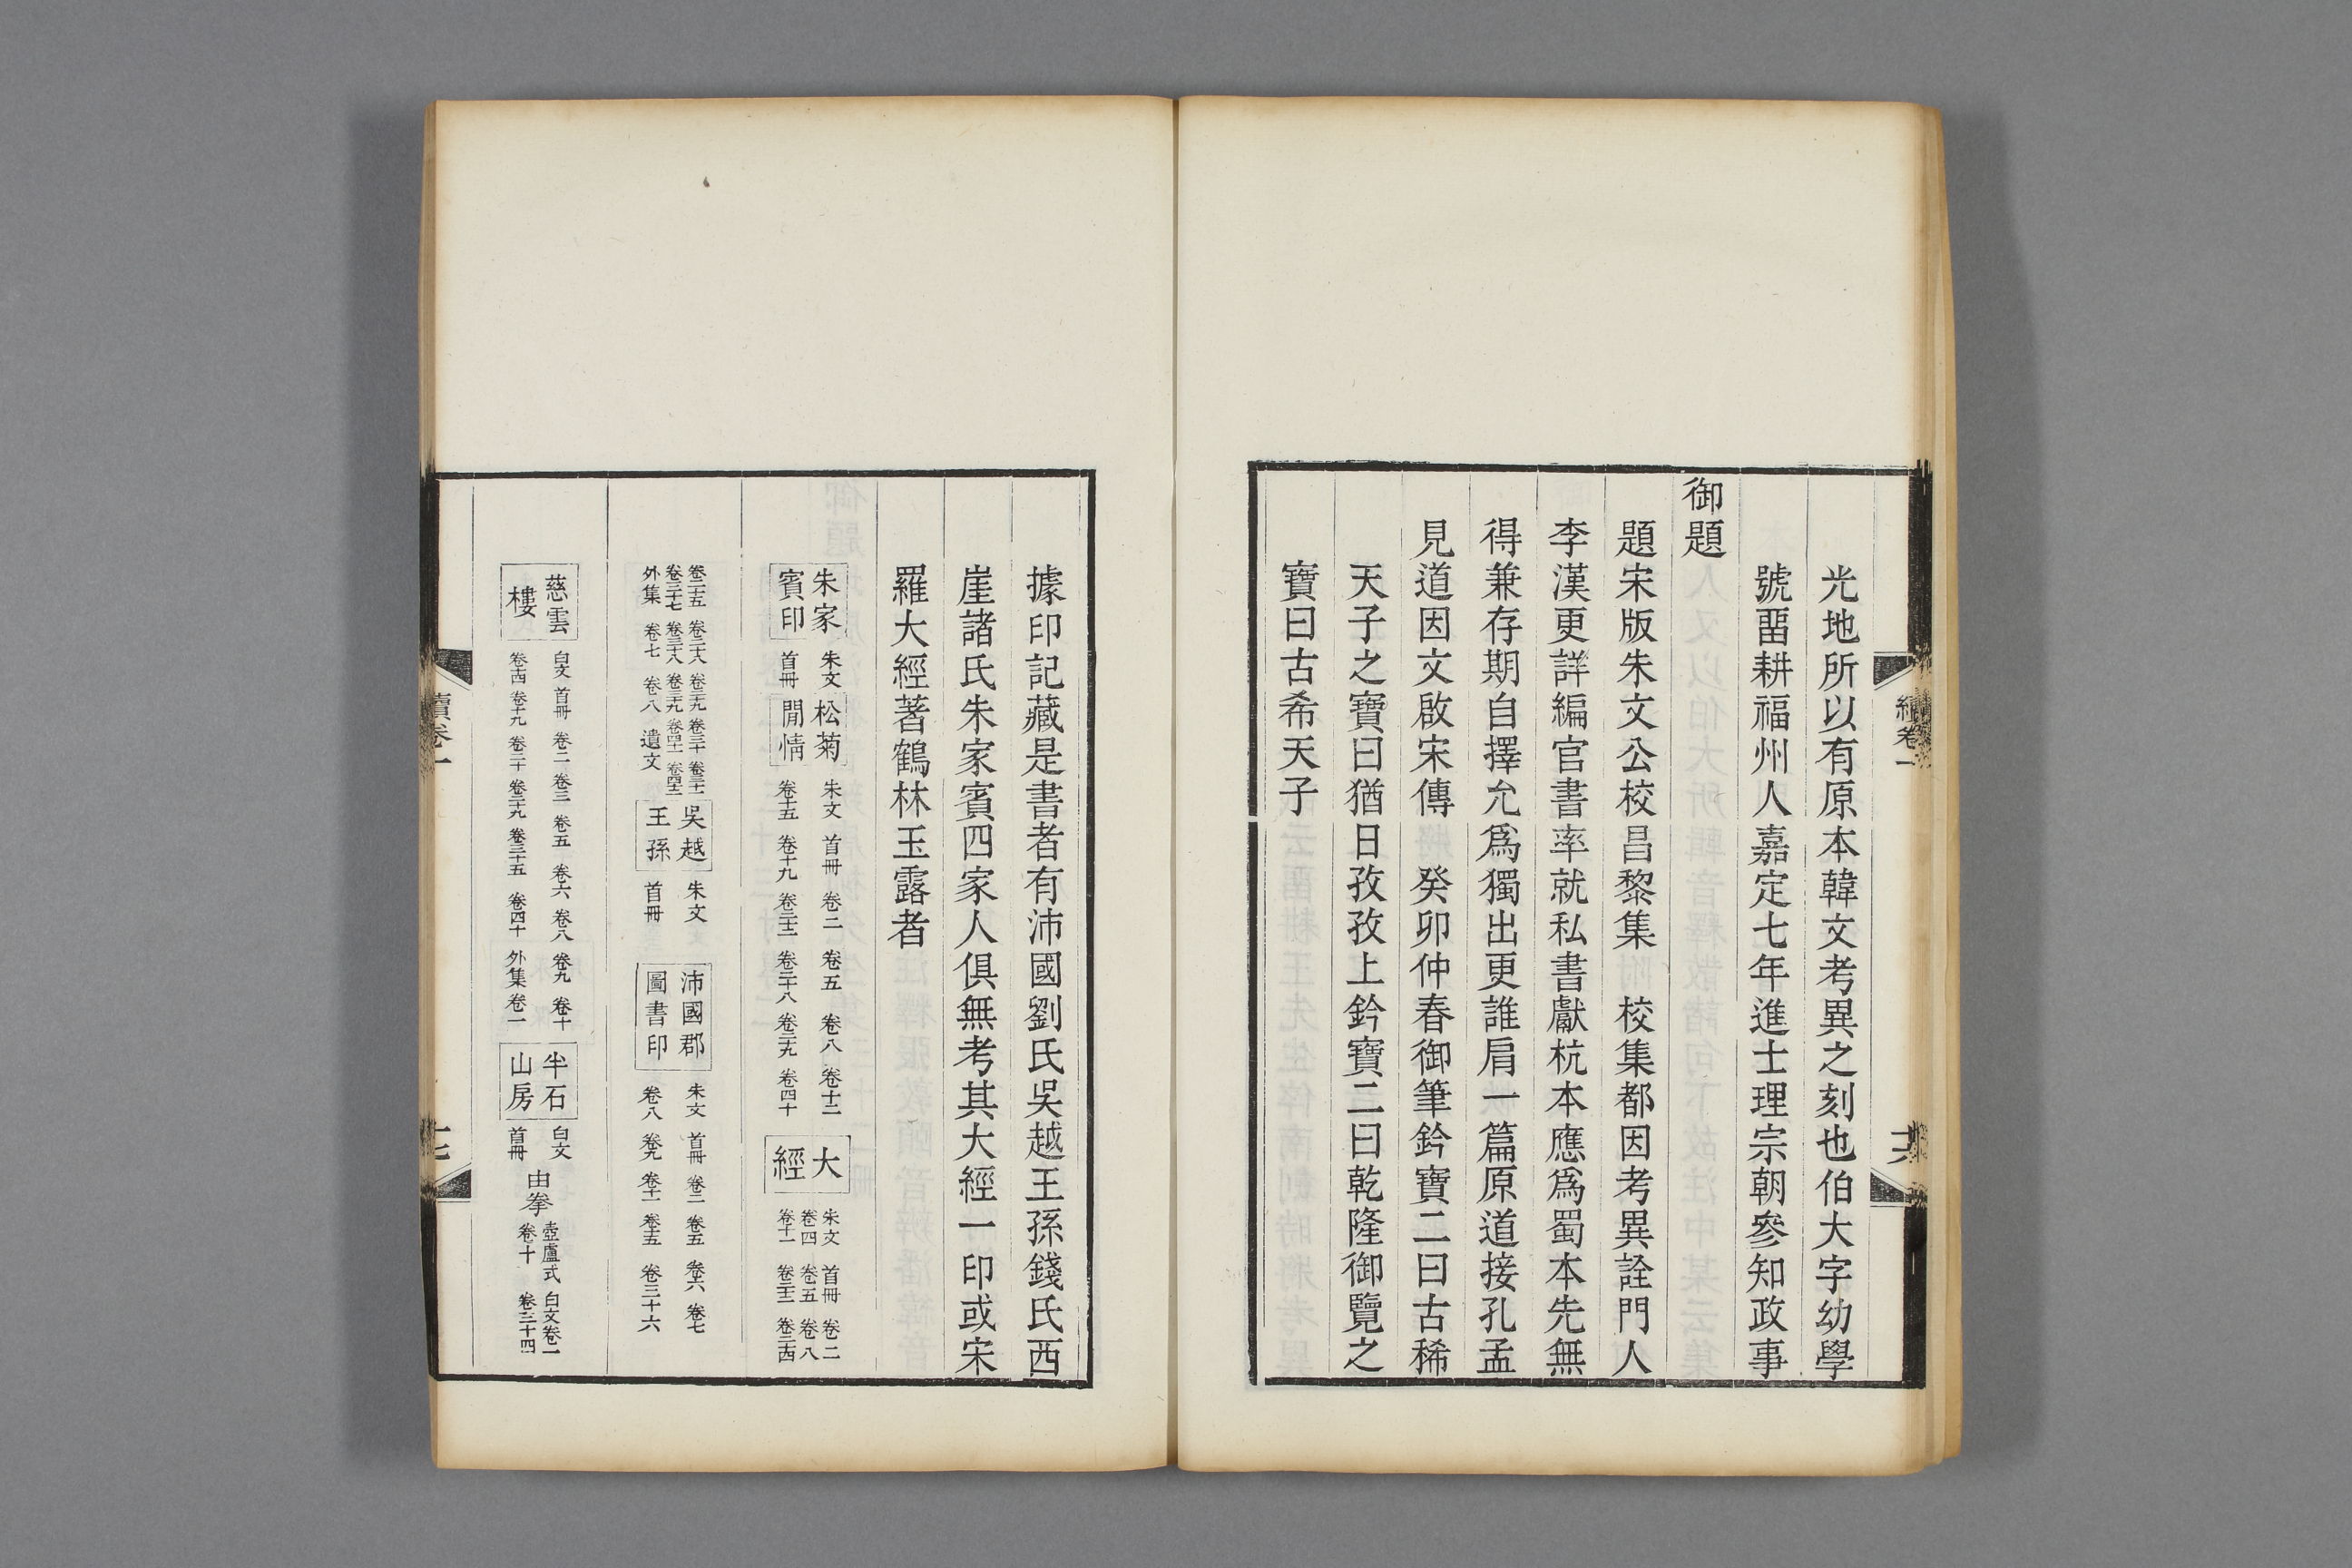 光地所以有原本韓文考異之刻也伯大字幼學
號畱耕福州人嘉定七年進士理宗朝參知政事
御題
題宋版朱文公校昌黎集　校集都因考異詮門人
李漢更詳編官書率就私書獻杭本應爲蜀本先無
得兼存期自擇允爲獨出更誰肩一篇原道接孔孟
見道因文啟宋傳　癸卯仲春御筆鈐寶二曰古稀
天子之寶曰猶日孜孜上鈐寶二曰乾隆御覽之
寶曰古希天子
據印記藏是書者有沛國劉氏吳越王孫錢氏西
崖諸氏朱家賓四家人俱無考其大經一印或宋
羅大經著鶴林玉露者
朱家
賓印
朱文
首冊
松菊
閒情
朱文　首冊　卷二　卷五　卷八　卷十二
卷十五　卷十九　卷二十三　卷二十八　卷三十九　卷四十
大
經
朱文　首冊　卷二
卷四　卷五　卷八
卷十一
卷二十五　卷二十八　卷二十九　卷三十
卷三十七　卷三十八　卷三十九
外集　卷七　卷八　遺文
吳越
王孫
朱文
首冊
沛國郡
圖書印
朱文　首冊　卷三　卷五　卷六　卷七
卷八　卷九　卷十一　卷十五　卷三十六
慈雲
樓
白文　首冊　卷二　卷三　卷五　卷六　卷八　卷九　卷十
卷十四　卷十九　卷二十　卷二十九　卷三十五　卷四十　外集　卷一
半石
山房
白文
首冊
由拳
壺盧式　白文卷一
卷十　卷三十四
續卷一